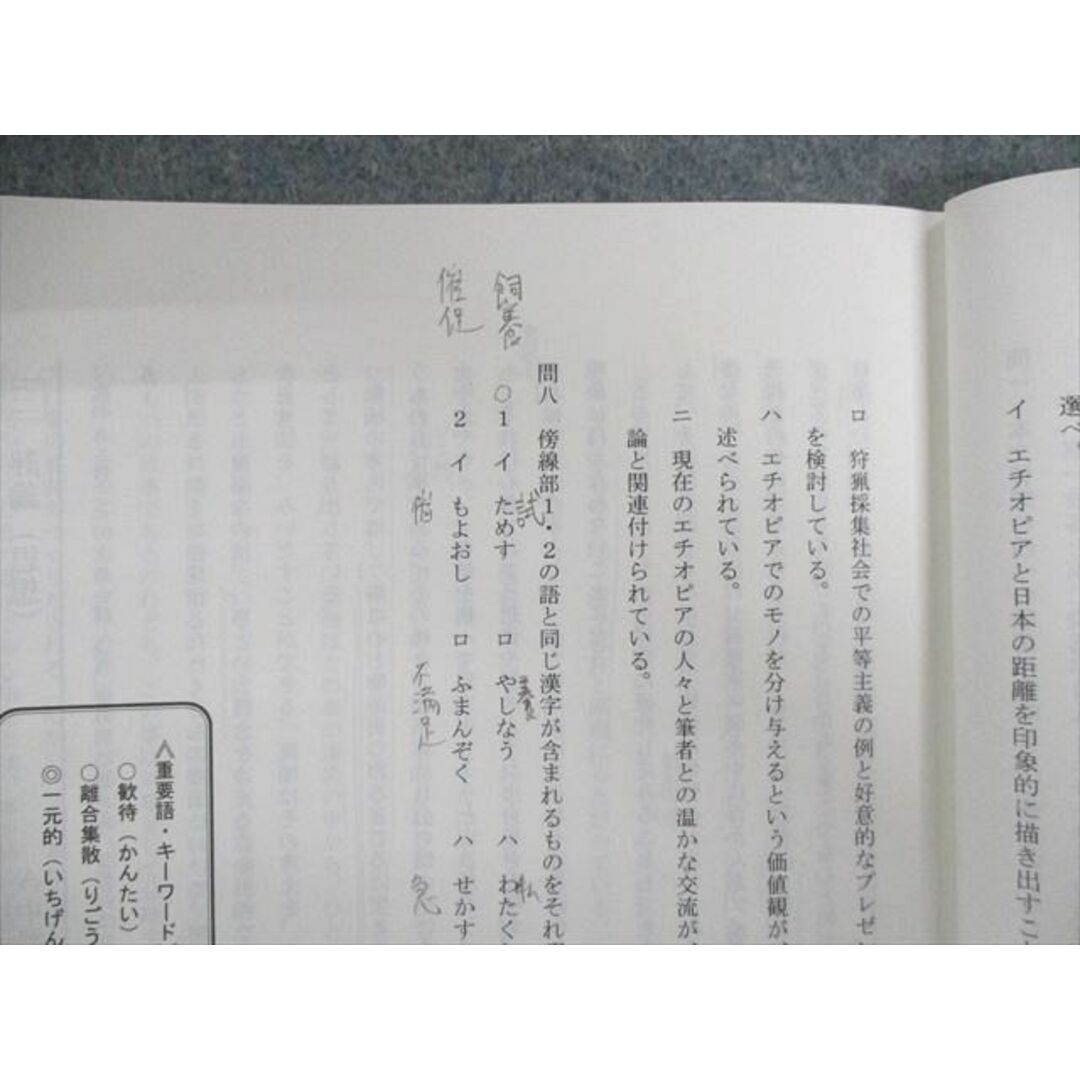 選べ。
イ エチオピアと日本の距離を印象的に描き出すこ
ロ 狩猟採集社会での平等主義の例と好意的なプレゼ
を検討している。
ハ エチオピアでのモノを分け与えるという価値観が、
述べられている。
ニ 現在のエチオピアの人々と筆者との温かな交流が、
論と関連付けられている。
問八 傍線部1・2の語と同じ漢字が含まれるものをそれ
飼養
試 養 私
○1 イ ためす ロ やしなう ハ わたく
催促
2 イ もよおし ロ ふまんぞく ハ せかす
催 不満足 急
〈重要語・キーワード
○歓待(かんたい)
○離合集散(りごう
◎一元的(いちげん